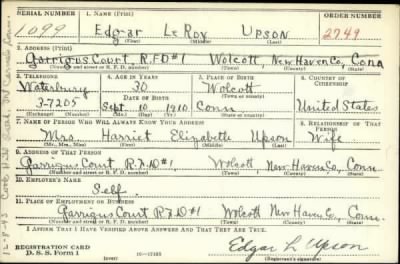 SERIAL NUMBER 1. NAME (Print) ORDER NUMBER
1099 Edgar LeRoy Upson 2749
(First) (Middle) (Last)
2. ADDRESS (Print)
Garrigus Court R.F.D #1 Wolcott, New Haven Co, Conn
(Number and street or R. F. D. number) (Town) (County) (State)
3. TELEPHONE 4. AGE IN YEARS 5. PLACE OF BIRTH 6. COUNTRY OF CITIZENSHIP
Waterbury 30 Wolcott
DATE OF BIRTH
3-7205 Sept. 10, 1910 Conn United States
(Exchange) (Number) (Mo.) (Day) (Yr.) (State or country)
7. NAME OF PERSON WHO WILL ALWAYS KNOW YOUR ADDRESS 8. RELATIONSHIP OF THAT PERSON
Mrs. Harriet Elizabeth Upson Wife
(Mr., Mrs., Miss) (First) (Middle) (Last)
9. ADDRESS OF THAT PERSON
Garrigus Court R.F.D #1, Wolcott, New Haven Co., Conn
(Number and street or R. F. D. number) (Town) (County) (State)
10. EMPLOYER'S NAME
Self
11. PLACE OF EMPLOYMENT OR BUSINESS
Garrigus Court R.F.D #1 Wolcott New Haven Co., Conn.
(Number and street or R. F. D. number) (Town) (County) (State)
I AFFIRM THAT I HAVE VERIFIED ABOVE ANSWERS AND THAT THEY ARE TRUE.
REGISTRATION CARD
D. S. S. Form 1 (over) Edgar L. Upson
(Registrant's signature)